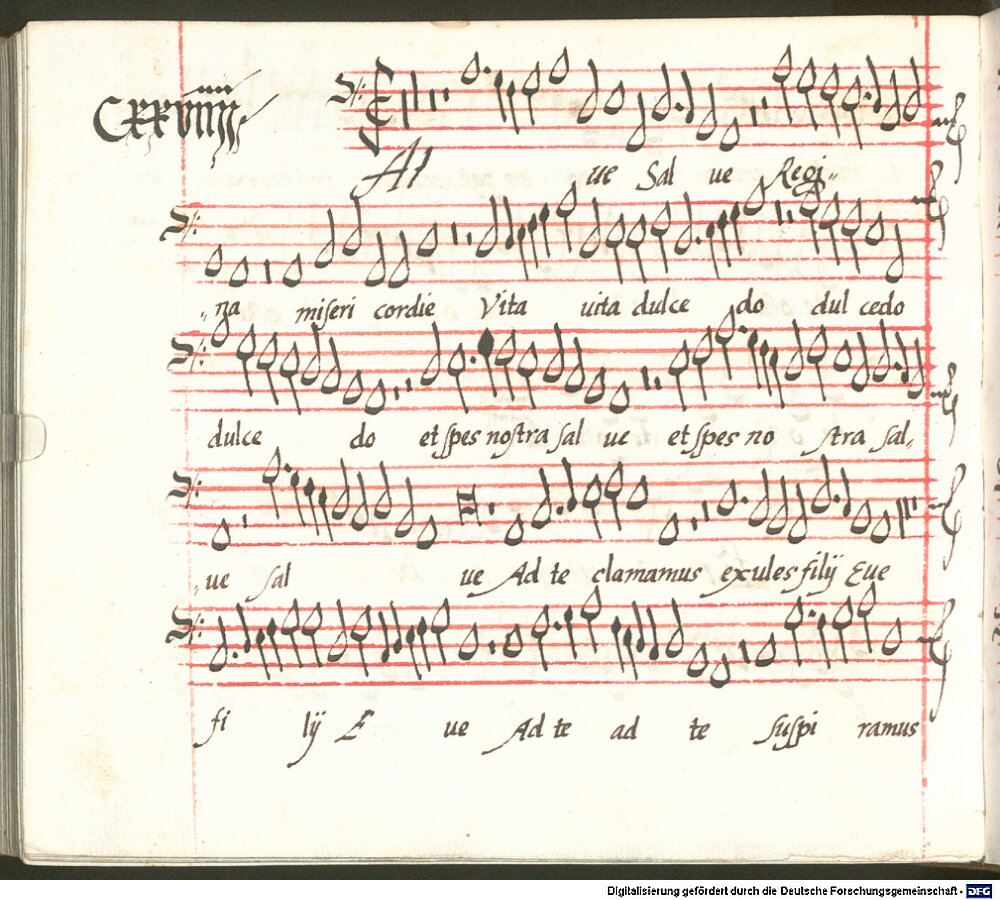 CXXVIIII
Al ue Sal ue Regi„
„na miseri cordie Vita uita dulce do dul cedo
dulce do et spes nostra sal ue et spes no stra sal„
„ue sal ue Ad te clamamus exules filij Eue
fi lij E ue Ad te ad te suspi ramus
Digitalisierung gefördert durch die Deutsche Forschungsgemeinschaft - DFG